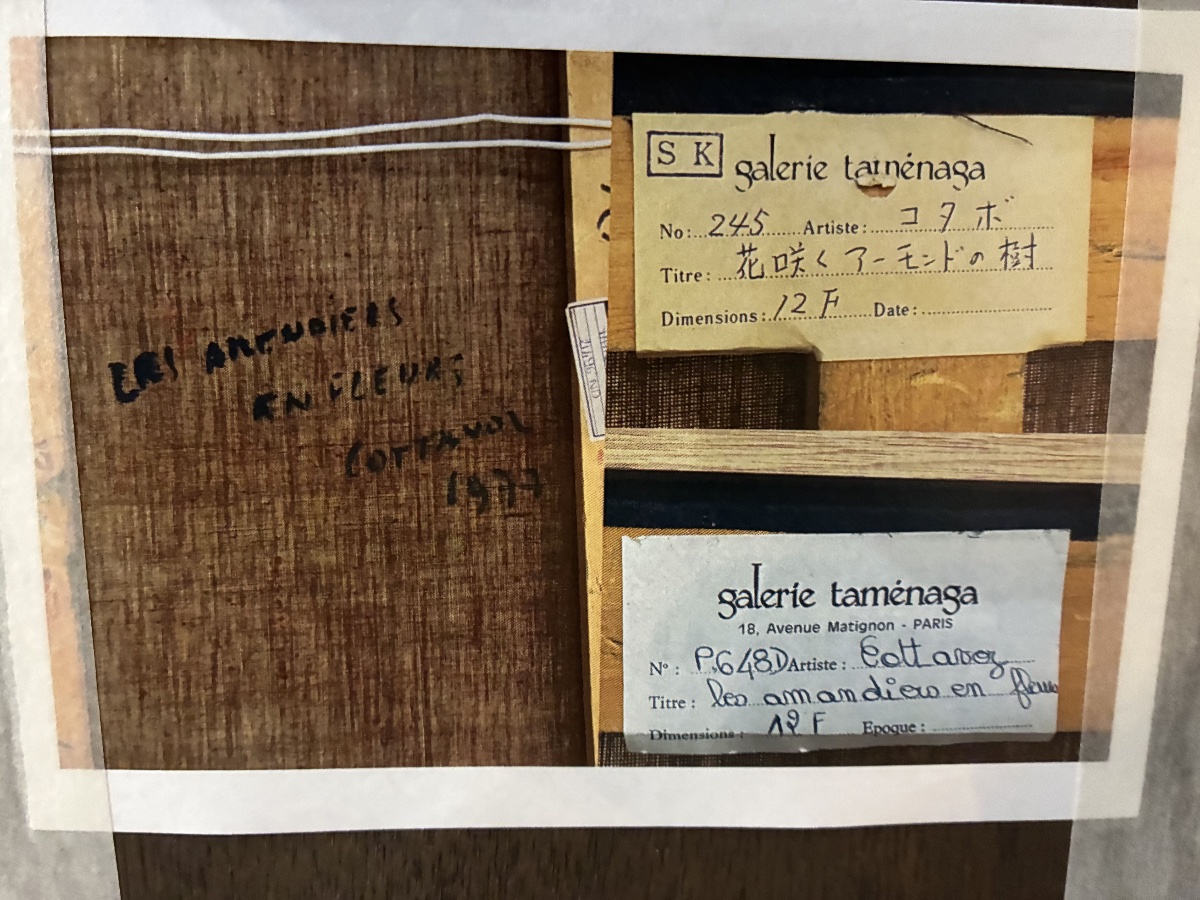 LES AMENDIERS
EN FLEURS
COTTAVOZ
1977
S K galerie taménaga
No: 245 Artiste: コタボ
Titre: 花咲くアーモンドの樹
Dimensions: 12 F Date:
galerie taménaga
18, Avenue Matignon - PARIS
N° : P.648D Artiste : Cottavoz
Titre : les amandiers en fleurs
Dimensions : 12 F Epoque :